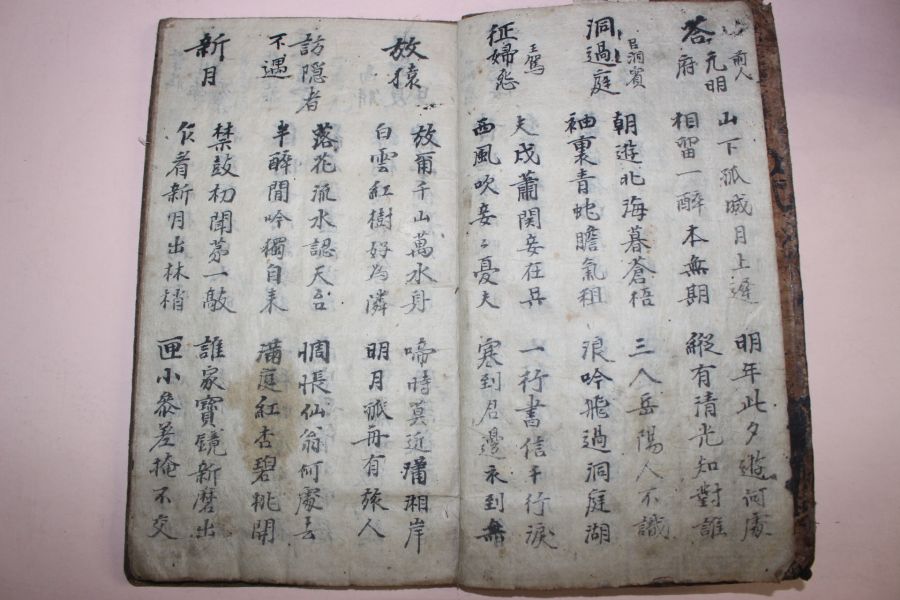 前人
元明
答府
山下孤城月上遲 明年此夕遊何處
相留一醉本無期 縱有清光知對誰
洞過庭
呂洞賓
朝遊北海暮蒼梧 三入岳陽人不識
袖裏青蛇膽氣粗 浪吟飛過洞庭湖
征婦怨
王駕
夫戍蕭關妾在吳 一行書信千行淚
西風吹妾〻憂夫 寒到君邊衣到無
放猿
放爾千山萬水身 啼時莫近瀟湘岸
白雲紅樹好為隣 明月孤舟有旅人
訪隱者
不遇
落花流水認天台 惆悵仙翁何處去
半醉閒吟獨自來 滿庭紅杏碧桃開
新月
禁鼓初聞第一敲 誰家寶鏡新磨出
乍看新月出林梢 匣小參差掩不交